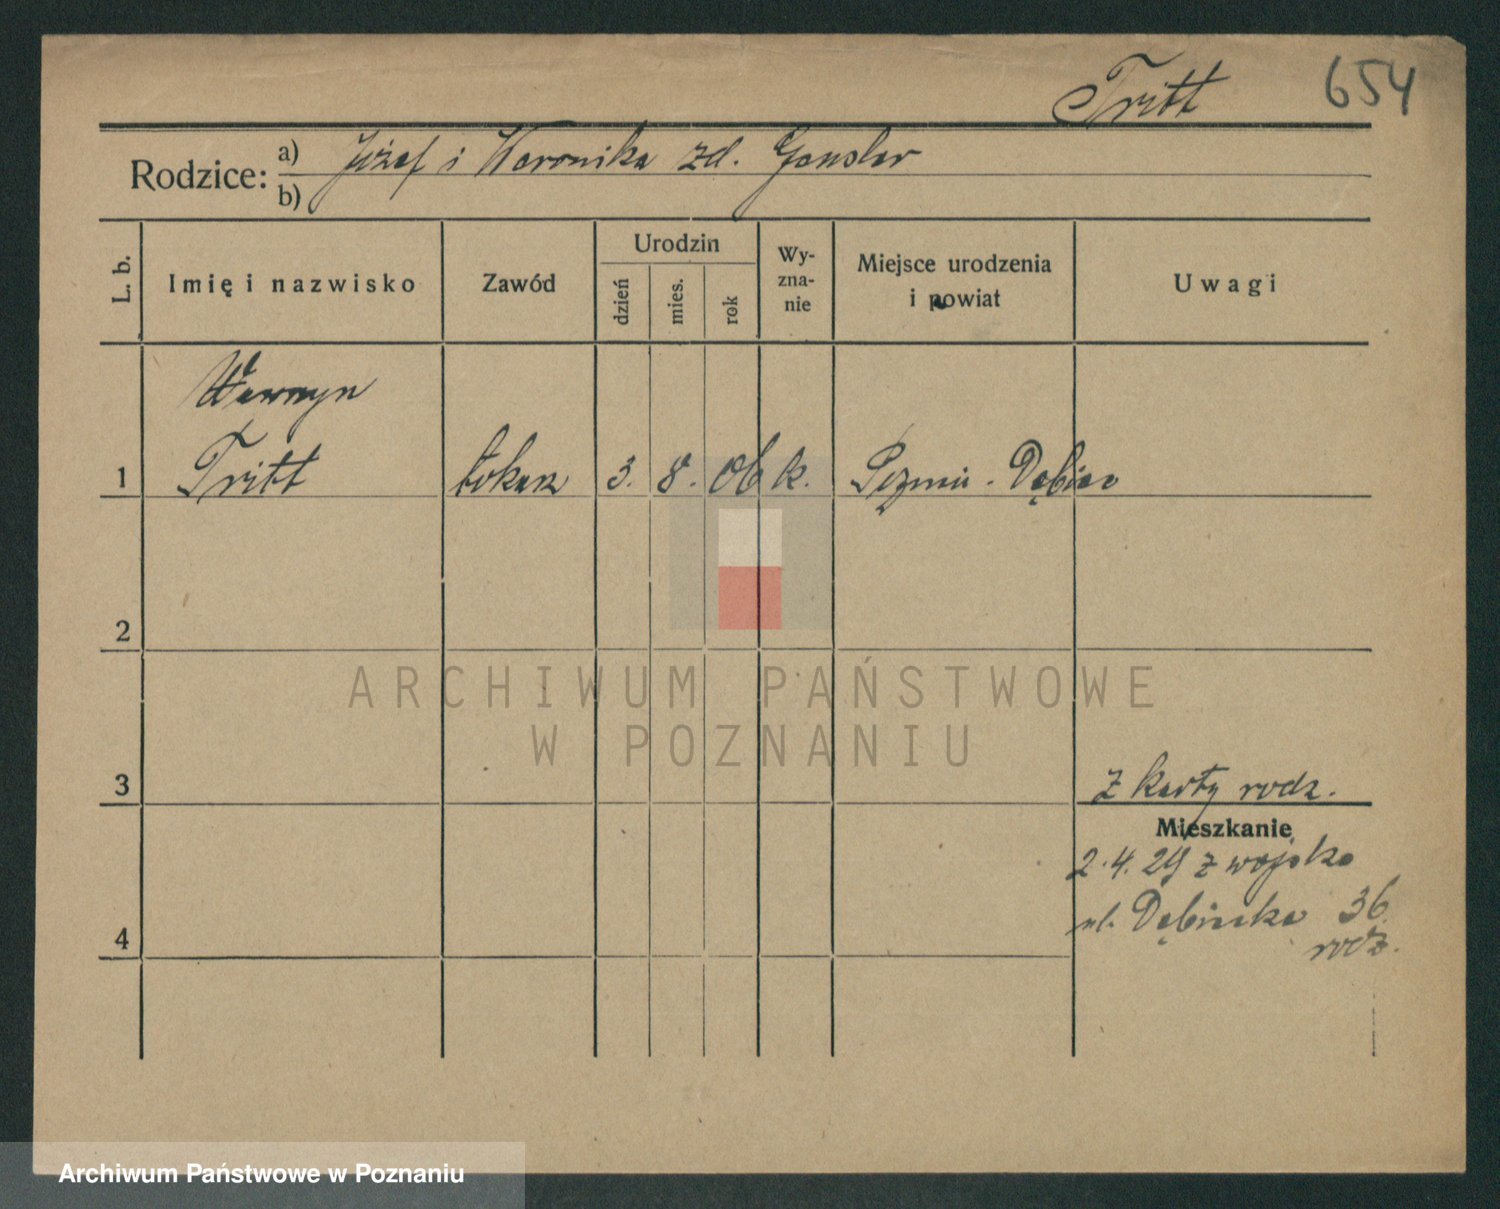 Tritt 654
Rodzice: a) Józef i Weronika zd. Gensler
b)
L. b. Imię i nazwisko Zawód Urodzin dzień mies. rok Wy-zna-nie Miejsce urodzenia i powiat Uwagi
Wawrzyn
1 Tritt tokarz 3. 8. 06 k. Dębiec
2
ARCHIWUM PAŃSTWOWE
W POZNANIU
3 z karty rodz.
Mieszkanie
2.4.29 z wojska
ul. Dębiecka 36
4 rodz.
Archiwum Państwowe w Poznaniu